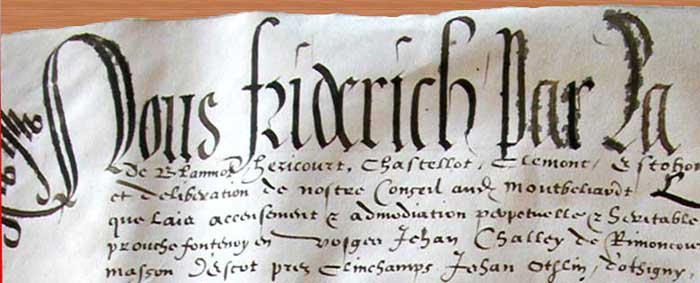 Nous friderich Par La
de Blanmot, hericourt, Chastellot, Clemont, Estobon
et deliberation de nostre Conseil and Montbeliardt
que Lais accensement & admodiation perpetuelle & heritable
prouche fontenoy en vosges Jehan Challey de Rimoncour
masson d'Escot prez Clinchamps, Jehan Othlin, d'othigny,